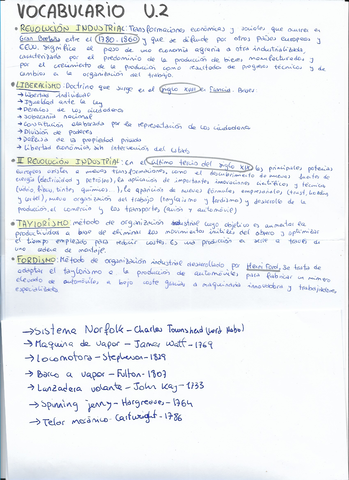 VOCABULARIO U.2
• REVOLUCIÓN INDUSTRIAL: Transformaciones económicas y sociales que ocurre en
Gran Bretaña entre el (1780-1860) y que se difunde por otros países europeos y
EEUU. Significa el paso de una economía agraria a otra industrializada,
caracterizada por el predominio de la producción de bienes manufacturados y
por el crecimiento de la producción como resultados de progresos técnicos y de
cambios en la organización del trabajo.
• LIBERALISMO: Doctrina que surge en el siglo XVIII en Francia. Bases:
→ Libertad individual
→ Igualdad ante la Ley
→ Derechos de los ciudadanos
→ Soberanía nacional
→ Constitución elaborada por la representación de los ciudadanos
→ División de poderes
→ Defensa de la propiedad privada
→ Libertad económica sin intervención del Estado
• II REVOLUCIÓN INDUSTRIAL: En el último tercio del siglo XIX las principales potencias
europeas asisten a nuevas transformaciones, como el descubrimiento de nuevas fuentes de
energía (electricidad y petróleo), la aparición de importantes innovaciones científicas y técnicas
(radio, fibra, tintes, químicos...), la aparición de nuevas fórmulas empresariales (trust, holding
y cártel), nueva organización del trabajo (taylorismo y fordismo) y desarrollo de la
producción, el comercio y los transportes (avión y automóvil)
• TAYLORISMO: método de organización industrial cuyo objetivo es aumentar la
productividad a base de eliminar los movimientos inútiles del obrero y optimizar
el tiempo empleado para reducir costes. Es una producción en serie a través de
una cadena de montaje.
• FORDISMO: Método de organización industrial desarrollado por Henri Ford, se trata de
adaptar el taylorismo a la producción de automóviles para fabricar un número
elevado de automóviles a bajo coste gracias a maquinaria innovadora y trabajadores
especializados.
→ Sistema Norfolk - Charles Townshed (Lord Nabo)
→ Maquina de vapor - James Watt - 1769
→ Locomotora - Stephenson - 1829
→ Barco a vapor - Fulton - 1807
→ Lanzadera volante - John Kay - 1733
→ Spinning jenny - Hargreaves - 1764
→ Telar mecánico - Cartwright - 1786